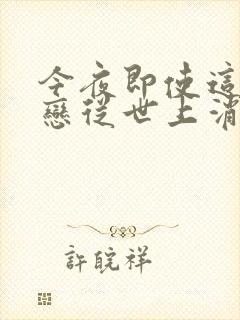 今夜即使這
戀從世上消
許皖祥